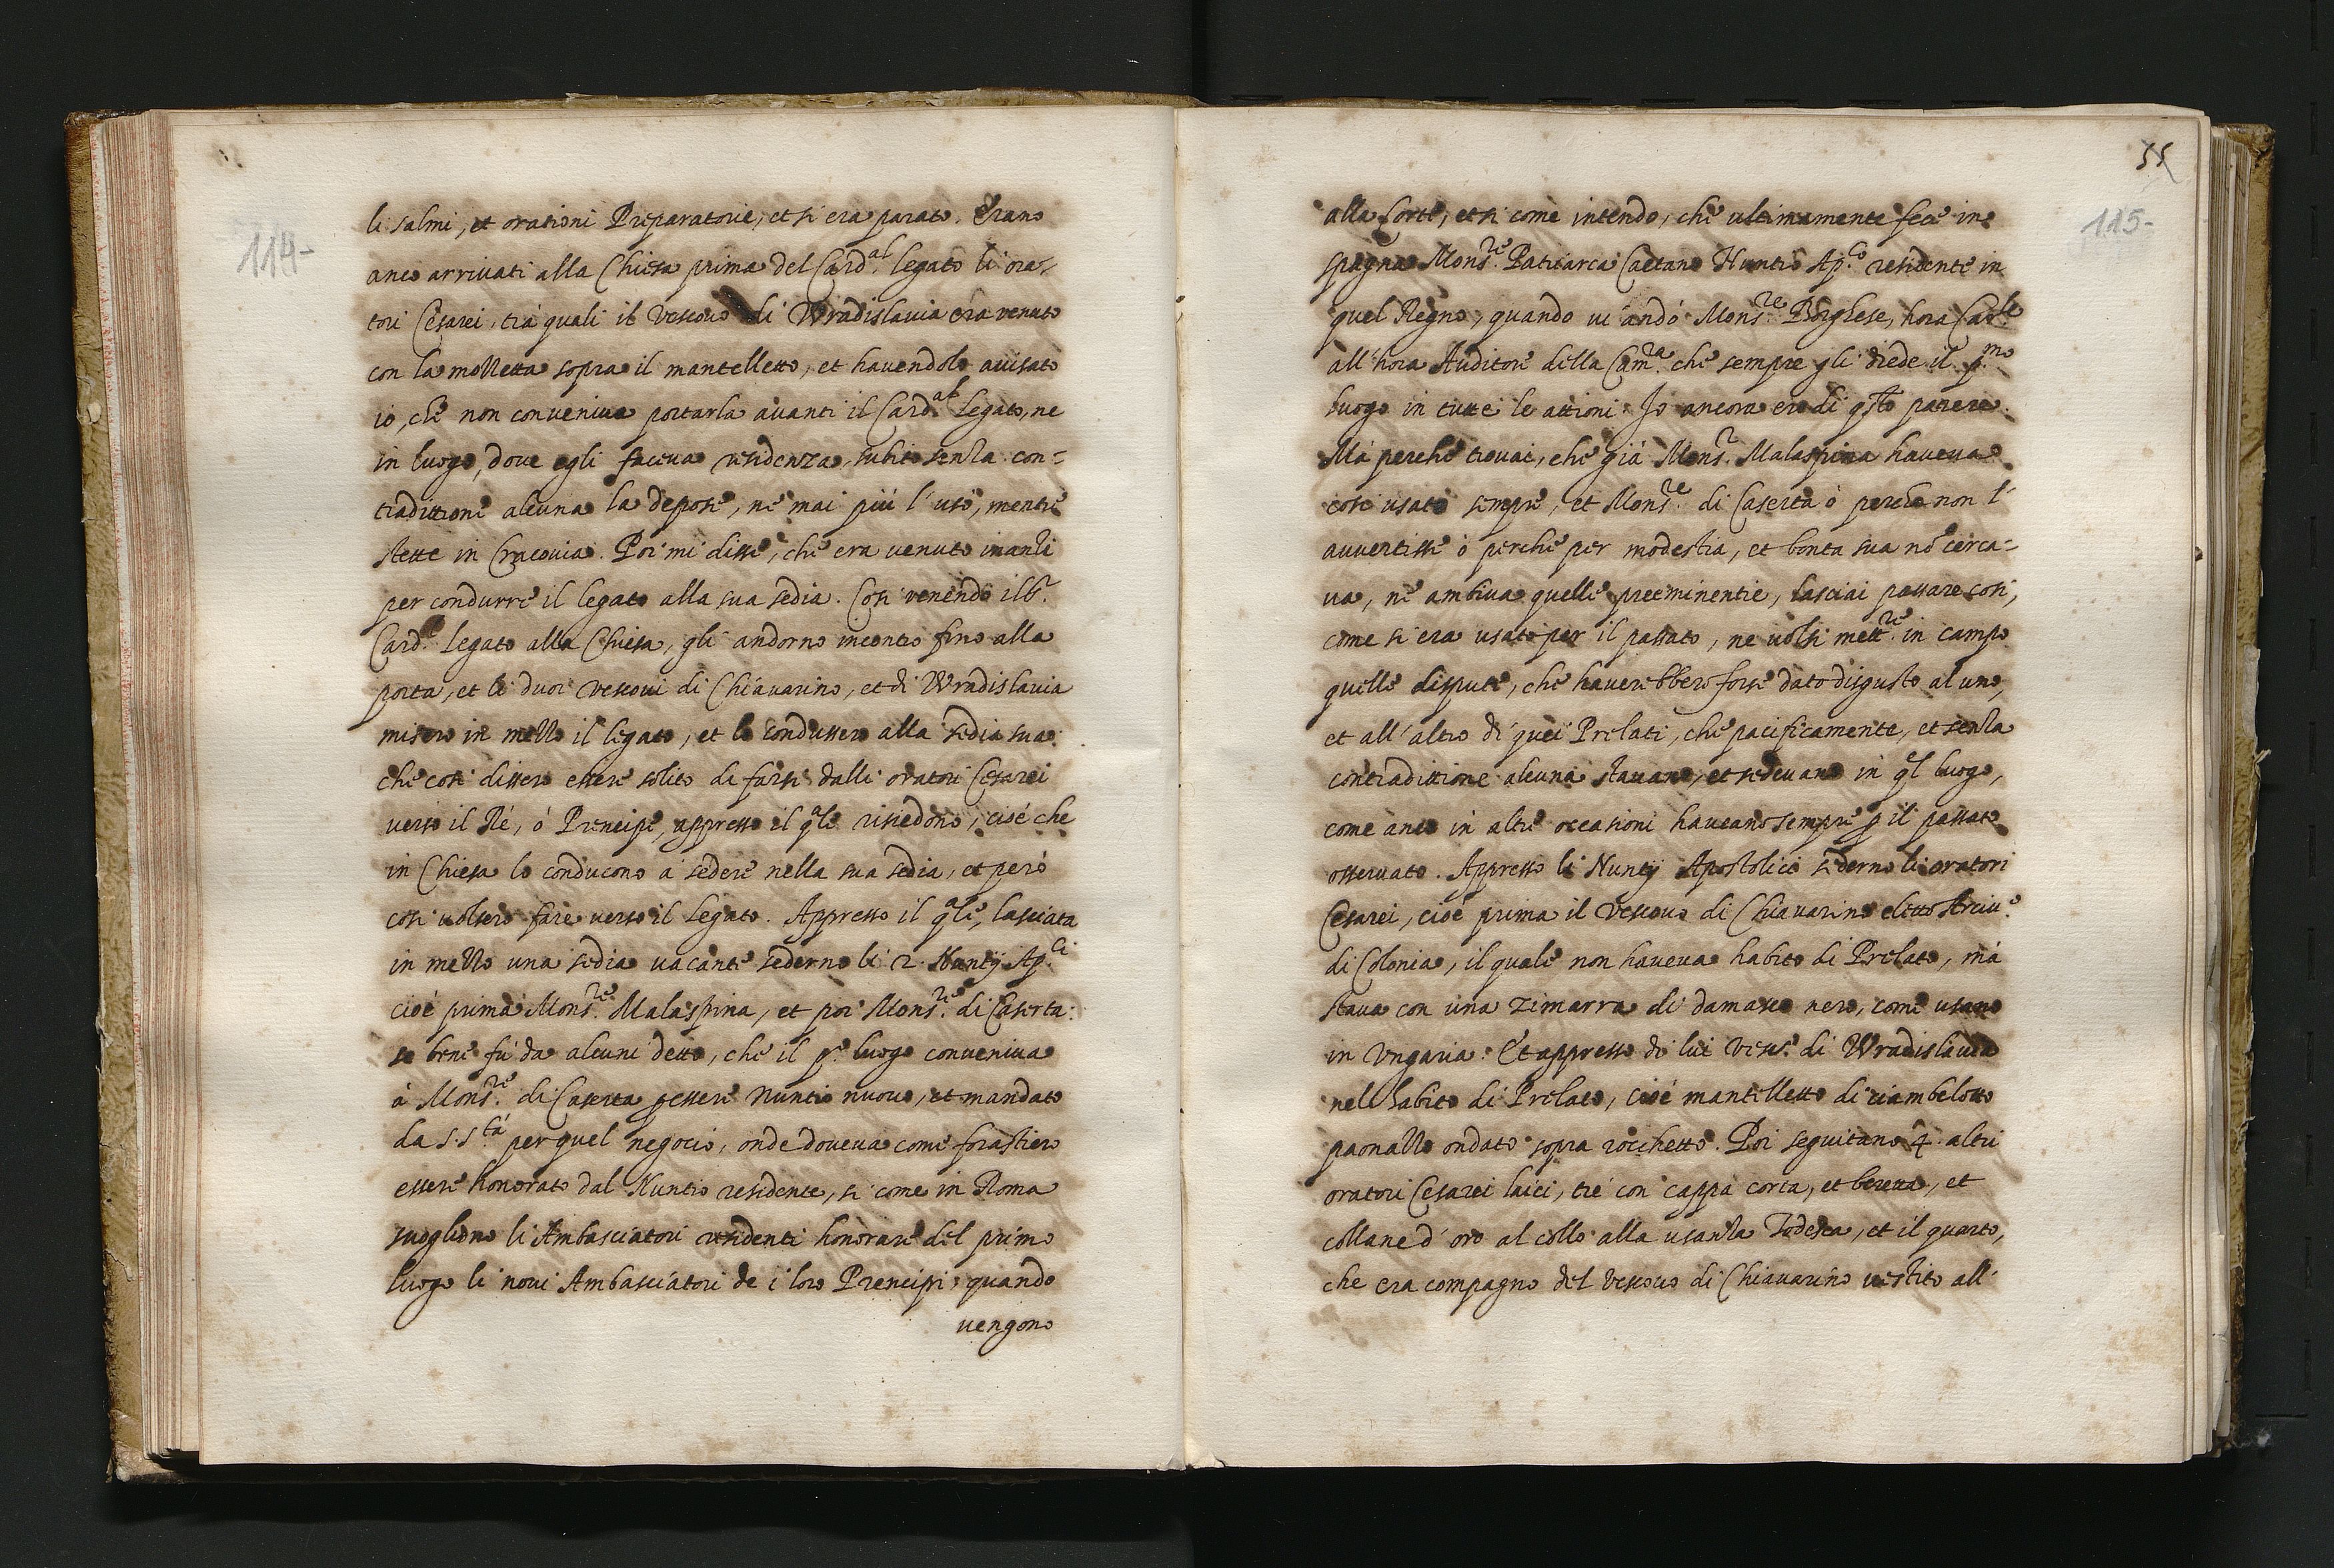 114-
li salmi, et orationi Preparatorie, et si era parato. Erano
anco arrivati alla Chiesa prima del Card.al legato li ora-
tori Cesarei, trà quali il Vescovo di Wradislavia era venuto
con la mozzetta sopra il mantelletto, et havendolo avisato
io, che non conveniva portarla avanti il Card.al legato, ne
in luogo, dove egli faceva residenza, subito senza con=
tradittione alcuna la depose, ne mai più l'usò, mentre
stette in Cracovia. Poi mi disse, che era venuto inanzi
per condurre il legato alla sua sedia. Così venendo il
Card.l legato alla Chiesa, gli andorno incontro fino alla
porta, et li duoi vescovi di Chiavarino, et di Wradislavia
misero in mezzo il legato, et lo condussero alla sedia sua:
che così dissero essere solito di farsi dalli oratori Cesarei
verso il Rè, ò Prencipe, appresso il qale risiedono, cioè che
in Chiesa lo conducono à sedere nella sua sedia, et però
così volsero fare verso il legato. Appresso il qale, lasciata
in mezzo una sedia vacante sederno li 2 Nuntij Ap.ci
cioè prima Mons.re Malaspina, et poi Mons.re di Caserta:
se bene fù da alcuni detto, che il p.o luogo conveniva
à Mons.re di Caserta p essere Nuntio nuovo, et mandato
da S. S.tà per quel negocio, onde doveva come forastiero
essere honorato dal Nuntio residente, si come in Roma
sogliono li Ambasciatori residenti honorare del primo
luogo li novi Ambasciatori de i loro Prencipi quando
vengono
55
115-
alla Corte, et si come intendo, che ultimamente fece in
spagna Mons.re Patriarca Caetano Nuntio Ap.co residente in
quel Regno, quando vi andò Mons.re Borghese, hora Car.le
all'hora Auditore della Cam.ra che sempre gli diede il p.mo
luogo in tutte le attioni. Io ancora ero di qsto parere.
Mà perche trovai, che già Mons.r Malaspina haveva
così usato sempre, et Mons.re di Caserta ò perche non l'
avvertisse ò perche per modestia, et bonta sua nō cerca=
va, nè ambiva quelle preeminentie, lasciai passare così,
come si era usato per il passato, ne volsi mett.re in campo
quelle dispute, che haverebbero forse dato disgusto al uno,
et all'altro di quei Prelati, che pacificamente, et senza
contradittione alcuna stavano, et sedevano in ql luogo,
come anco in altre occasioni haveano sempre p il passato
osservato. Appresso li Nuntij Apostolici sederno li oratori
Cesarei, cioè prima il Vescovo di Chiavarino eletto Arciv.o
di Colonia, il quale non haveva habito di Prelato, mà
stava con una zimarra di damasco nero, come usano
in Vngaria. Et appresso di lui Vesc.o di Wradislavia
nell habito di Prelato, cioè mantelletto di ciambelotto
paonazzo ondato sopra rocchetto. Poi seguitano 4. altri
oratori Cesarei laici, tre con cappa corta, et beretta, et
collane d'oro al collo alla usanza Todesca, et il quarto,
che era compagno del Vescovo di Chiavarino vestito all'